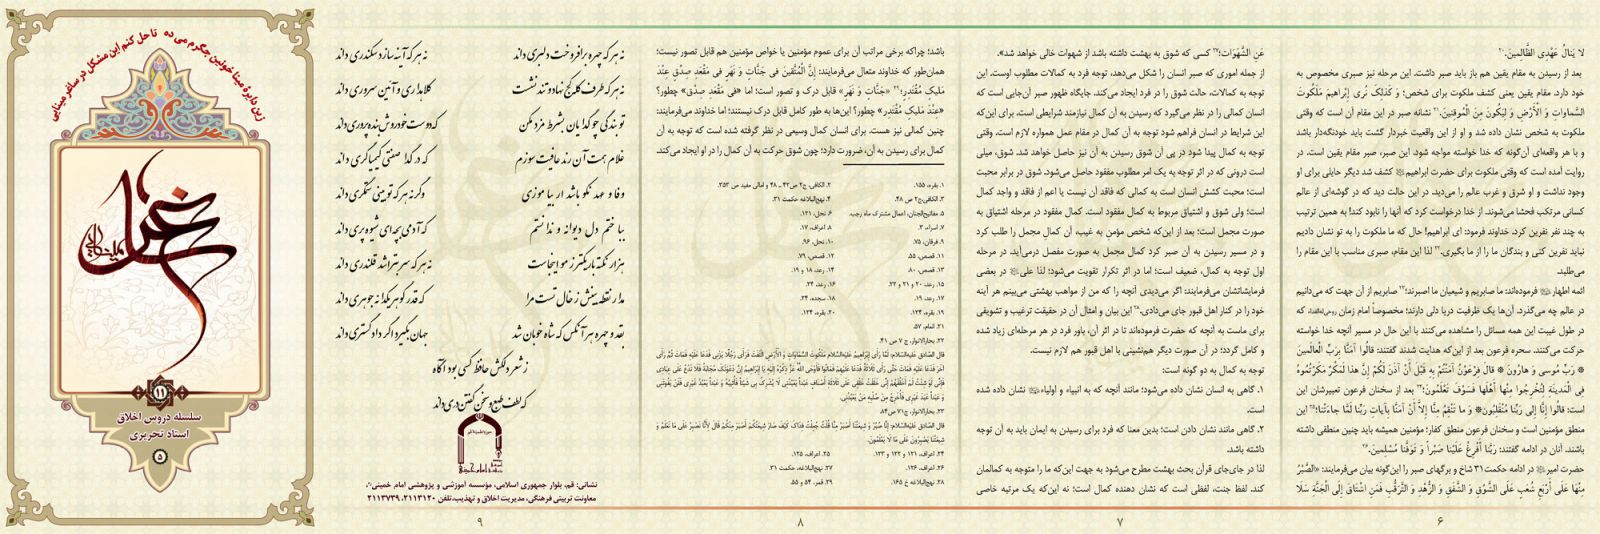 لا یَنالُ عَهْدِی الظَّالِمِینَ.۲۰
بعد از رسیدن به مقام یقین هم باز باید صبر داشت. این مرحله نیز صبری مخصوص به
خود دارد. مقام یقین یعنی کشف ملکوت برای شخص؛ وَ کَذلِکَ نُرِی إِبْراهِیمَ مَلَکُوتَ
السَّماواتِ وَ الْأَرْضِ وَ لِیَکُونَ مِنَ الْمُوقِنِینَ.۲۱ نشانه صبر در این مقام آن است که وقتی
ملکوت به شخص نشان داده شد و او از این واقعیت خبردار گشت باید خودنگه‌دار باشد
و با هر واقعه‌ای آن‌گونه که خدا خواسته مواجه شود. این صبر، صبر مقام یقین است. در
روایت آمده است که وقتی ملکوت برای حضرت ابراهیم کشف شد دیگر حایلی برای او
وجود نداشت و او شرق و غرب عالم را می‌دید. در این حالت دید که در گوشه‌ای از عالم
کسانی مرتکب فحشا می‌شوند. از خدا درخواست کرد که آنها را نابود کند! به همین ترتیب
به چند نفر نفرین کرد. خداوند فرمود: ای ابراهیم! حال که ما ملکوت را به تو نشان دادیم
نباید نفرین کنی و بندگان ما را از ما بگیری.۲۲ لذا این مقام، صبری مناسب با این مقام را
می‌طلبد.
ائمه اطهار فرموده‌اند: ما صابریم و شیعیان ما اصبرند؛۲۳ صابریم از آن جهت که می‌دانیم
در عالم چه می‌گذرد. آن‌ها یک ظرفیت دریا دلی دارند؛ مخصوصاً امام زمان که
در طول غیبت این همه مسائل را مشاهده می‌کنند با این حال در مسیر آنچه خدا خواسته
حرکت می‌کنند. سحره فرعون بعد از این‌که هدایت شدند گفتند: قالُوا آمَنَّا بِرَبِّ الْعالَمِینَ
رَبِّ مُوسی وَ هارُونَ قالَ فِرْعَوْنُ آمَنْتُمْ بِهِ قَبْلَ أَنْ آذَنَ لَکُمْ إِنَّ هذا لَمَکْرٌ مَکَرْتُمُوهُ
فِی الْمَدِینَةِ لِتُخْرِجُوا مِنْها أَهْلَها فَسَوْفَ تَعْلَمُونَ؛۲۴ بعد از سخنان فرعون تعبیرشان این
است: قالُوا إِنَّا إِلی رَبِّنا مُنْقَلِبُونَ وَ ما تَنْقِمُ مِنَّا إِلاَّ أَنْ آمَنَّا بِآیاتِ رَبِّنا لَمَّا جاءَتْنا؛۲۵ این
منطق مؤمنین است و سخنان فرعون منطق کفار؛ مؤمنین همیشه باید چنین منطقی داشته
باشند. آنان در ادامه گفتند: رَبَّنا أَفْرِغْ عَلَیْنا صَبْراً وَ تَوَفَّنا مُسْلِمِینَ.۲۶
حضرت امیر در ادامه حکمت ۳۱ شاخ و برگهای صبر را این‌گونه بیان می‌فرمایند: «الصَّبْرُ
مِنْها عَلی أَرْبَعِ شُعَبٍ عَلَی الشَّوْقِ وَ الشَّفَقِ وَ الزُّهْدِ وَ التَّرَقُّبِ فَمَنِ اشْتاقَ إِلَی الْجَنَّةِ سَلا
۶
عَنِ الشَّهَوَاتِ؛۲۷ کسی که شوق به بهشت داشته باشد از شهوات خالی خواهد شد».
از جمله اموری که صبر انسان را شکل می‌دهد، توجه فرد به کمالات مطلوب اوست. این
توجه به کمالات، حالت شوق را در فرد ایجاد می‌کند. جایگاه ظهور صبر آن‌جایی است که
انسان کمالی را در نظر می‌گیرد که رسیدن به آن کمال نیازمند شرایطی است. برای این‌که
این شرایط در انسان فراهم شود توجه به آن کمال در مقام عمل همواره لازم است. وقتی
توجه به کمال پیدا شود در پی آن شوق رسیدن به آن نیز حاصل خواهد شد. شوق، میلی
است درونی که در اثر توجه به یک امر مطلوب مفقود حاصل می‌شود. شوق در برابر محبت
است؛ محبت کشش انسان است به کمالی که فاقد آن نیست یا اعم از فاقد و واجد کمال
است؛ ولی شوق و اشتیاق مربوط به کمال مفقود است. کمال مفقود در مرحله اشتیاق به
صورت مجمل است؛ بعد از این‌که شخص مؤمن به غیب، آن کمالِ مجمل را طلب کرد
و در مسیر رسیدن به آن صبر کرد کمال مجمل به صورت مفصل درمی‌آید. در مرحله
اول توجه به کمال، ضعیف است؛ اما در اثر تکرار تقویت می‌شود؛ لذا علی در بعضی
فرمایشاتشان می‌فرمایند: اگر می‌دیدی آنچه را که من از مواهب بهشتی می‌بینم هر آینه
خود را در کنار اهل قبور جای می‌دادی.۲۸ این بیان و امثال آن در حقیقت ترغیب و تشویقی
برای ماست به آنچه که حضرت فرموده‌اند تا در اثر آن، باور فرد در هر مرحله‌ای زیاد شده
و کامل گردد؛ در آن صورت دیگر هم‌نشینی با اهل قبور هم لازم نیست.
توجه به کمال به دو گونه است:
۱. گاهی به انسان نشان داده می‌شود؛ مانند آنچه که به انبیاء و اولیاء نشان داده شده
است.
۲. گاهی مانند نشان دادن است؛ بدین معنا که فرد برای رسیدن به ایمان باید به آن توجه
داشته باشد.
لذا در جای‌جای قرآن بحث بهشت مطرح می‌شود به جهت این‌که ما را متوجه به کمالمان
کند. لفظ جنت، لفظی است که نشان دهنده کمال است؛ نه این‌که یک مرتبه خاصی
۷
باشد؛ چراکه برخی مراتب آن برای عموم مؤمنین یا خواص مؤمنین هم قابل تصور نیست؛
همان‌طور که خداوند متعال می‌فرمایند: إِنَّ الْمُتَّقِینَ فِی جَنَّاتٍ وَ نَهَرٍ فِی مَقْعَدِ صِدْقٍ عِنْدَ
مَلِیکٍ مُقْتَدِرٍ؛۲۹ «جَنَّاتٍ وَ نَهَرٍ» قابل درک و تصور است؛ اما «فِی مَقْعَدِ صِدْقٍ» چطور؟
«عِنْدَ مَلِیکٍ مُقْتَدِرٍ» چطور؟ این‌ها به طور کامل قابل درک نیستند؛ اما خداوند می‌فرمایند:
چنین کمالی نیز هست. برای انسان کمال وسیعی در نظر گرفته شده است که توجه به آن
کمال برای رسیدن به آن، ضرورت دارد؛ چون شوق حرکت به آن کمال را در او ایجاد می‌کند.
۱. بقره، ۱۵۵.
۲. الکافی، ج۲ ص۴۲ ـ ۴۸ و امالی مفید ص ۳۵۳.
۳. الکافی، ج۲ ص ۴۸.
۴. نهج‌البلاغه حکمت ۳۱.
۵. مفاتیح‌الجنان، اعمال مشترک ماه رجب.
۶. نحل، ۱۲۱.
۷. اسراء، ۳.
۸. اعراف، ۱۷.
۹. فرقان، ۷۵.
۱۰. نحل، ۹۶.
۱۱. قصص، ۵۵.
۱۲. قصص، ۷۹.
۱۳. قصص، ۸۰.
۱۴. رعد، ۱۸ و ۱۹.
۱۵. رعد، ۲۰ و ۲۱ و ۲۲.
۱۶. رعد، ۲۴.
۱۷. رعد، ۱۹.
۱۸. سجده، ۲۴.
۱۹. بقره، ۱۲۴.
۲۰. بقره، ۱۲۴.
۲۱. انعام، ۵۷.
۲۲. بحارالانوار، ج ۷ ص ۴۱.
۲۳. بحارالانوار، ج۷۱ ص ۸۴.
۲۴. اعراف، ۱۲۱ و ۱۲۲ و ۱۲۳.
۲۵. اعراف، ۱۲۵.
۲۶. اعراف، ۱۲۶.
۲۷. نهج‌البلاغه، حکمت ۳۱.
۲۸. نهج‌البلاغه خ ۱۶۵.
۲۹. قمر، ۵۴ و ۵۵.
۸
نه هر که چهره برافروخت دلبری داند نه هر که آینه سازد سکندری داند
نه هر که طرف کله کج نهاد و تند نشست کلاه‌داری و آئین سروری داند
تو بندگی چو گدایان به شرط مزد مکن که دوست خود روش بنده پروری داند
غلام همت آن رند عافیت سوزم که در گدا صفتی کیمیاگری داند
وفا و عهد نکو باشد ار بیاموزی وگرنه هر که تو بینی ستمگری داند
بباختم دل دیوانه و ندانستم که آدمی بچه‌ای شیوه پری داند
هزار نکته باریکتر ز مو اینجاست نه هر که سر بتراشد قلندری داند
مدار نقطه بینش ز خال تست مرا که قدر گوهر یکدانه جوهری داند
بقد و چهره هر آنکس که شاه خوبان شد جهان بگیرد اگر دادگستری داند
ز شعر دلکش حافظ کسی بود آگاه
که لطف طبع و سخن گفتن دری داند
نشانی: قم، بلوار جمهوری اسلامی، مؤسسه آموزشی و پژوهشی امام خمینی
معاونت تربیتی فرهنگی، مدیریت اخلاق و تهذیب، تلفن ۲۱۱۳۱۲۰ ،۲۱۱۳۷۳۹
۹
زین دایره مینا خونین جگرم می ده تا حل کنم این مشکل در ساغر مینایی
۱۱
سلسله دروس اخلاق
استاد تحریری
۵